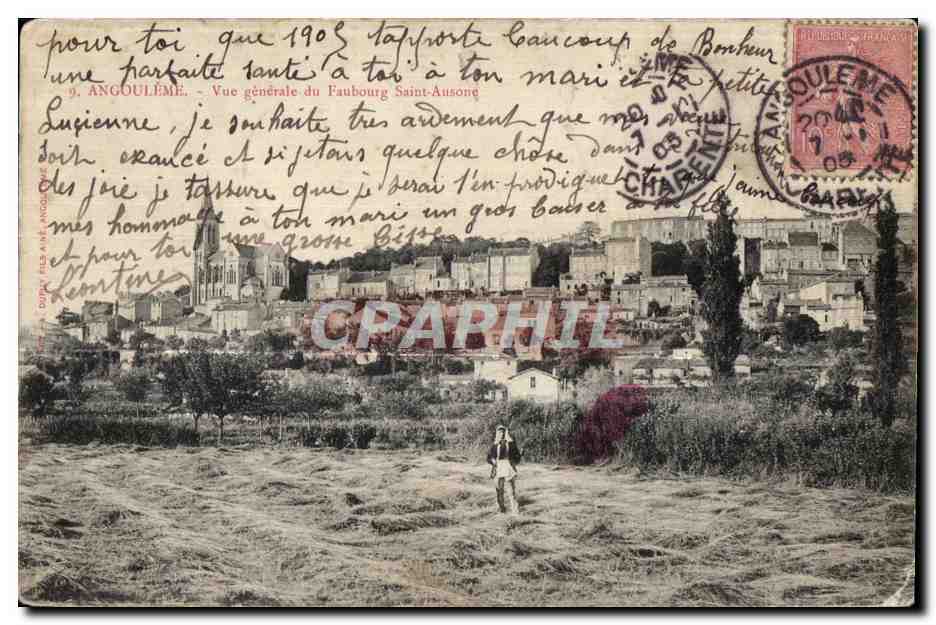 pour toi que 1905 t'apporte beaucoup de Bonheur
une parfaite santé à toi à ton mari et ta petite
9. ANGOULÊME. - Vue générale du Faubourg Saint-Ausone
Lucienne, je souhaite tres ardement que mes
soit exaucé et si j'etais quelque chôse dans
des joie je t'assure que je serai l'en prodigue
mes hommage à ton mari un gros baiser a la
et pour toi une grosse Bisse
Léontine
RÉPUBLIQUE FRANÇAISE
ANGOULEME
CHARENTE
DUPUY FILS AINÉ, ANGOULÊME
CPAPHIL